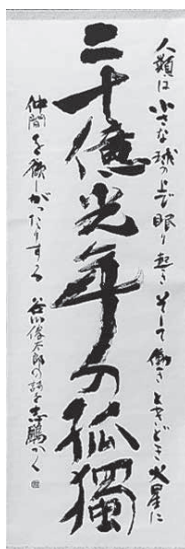 人類は小さな球の上で眠り起きそして働きときどき火星に
二十億光年の孤獨
仲間を欲しがったりする 谷川俊太郎の詩を かく